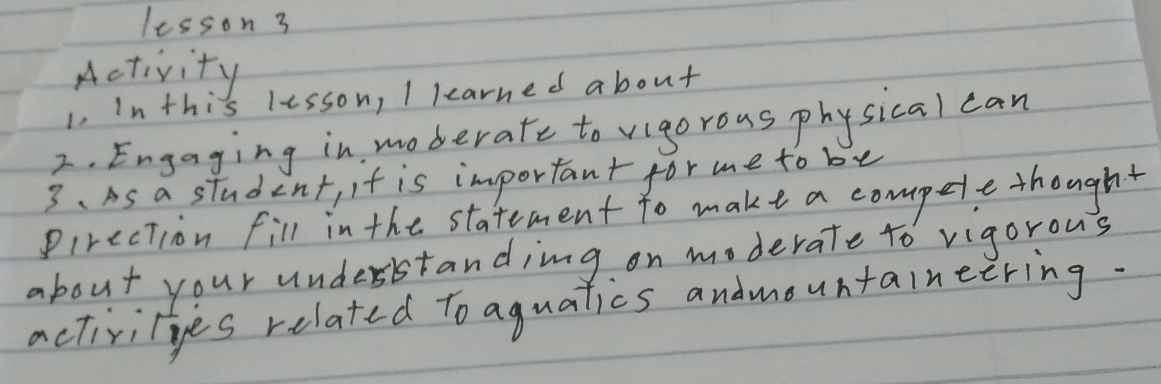 lesson 3
Activity
1. In this lesson, I learned about
2. Engaging in moderate to vigorous physical can
3. As a student, it is important for me to be
Direction fill in the statement to make a compete thought
about your understanding on moderate to vigorous
activities related to aquatics and mountaineering.